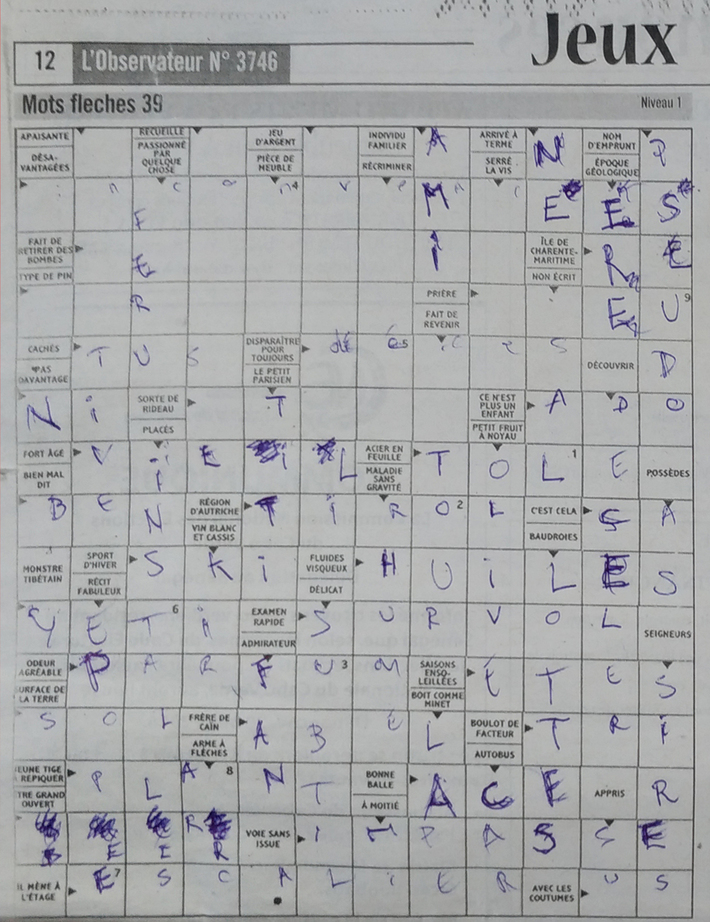 Jeux
12 L'Observateur N° 3746
Mots fleches 39 Niveau 1
APAISANTE
DÉSAVANTAGÉES
RECUEILLE
PASSIONNÉ PAR QUELQUE CHOSE
JEU D'ARGENT
PIÈCE DE MEUBLE
INDIVIDU FAMILIER
RÉCRIMINER
A
ARRIVÉ À TERME
SERRÉ LA VIS
N
NOM D'EMPRUNT
ÉPOQUE GÉOLOGIQUE
P
4 F M E E S
FAIT DE RETIRER DES BOMBES
TYPE DE PIN
E I
ÎLE DE CHARENTE-MARITIME
NON ÉCRIT
R E
R
PRIÈRE
FAIT DE REVENIR
E U 9
CACHÉS
PAS DAVANTAGE
T U S
DISPARAÎTRE POUR TOUJOURS
LE PETIT PARISIEN
5
DÉCOUVRIR
D
N i
SORTE DE RIDEAU
PLACÉS
T
CE N'EST PLUS UN ENFANT
PETIT FRUIT À NOYAU
A D O
FORT ÂGÉ
BIEN MAL DIT
V i E i L
ACIER EN FEUILLE
MALADIE SANS GRAVITÉ
T O L 1 E
POSSÈDES
B E N
RÉGION D'AUTRICHE
VIN BLANC ET CASSIS
T i R O 2 L
C'EST CELA
BAUDROIES
Ç A
MONSTRE TIBÉTAIN
SPORT D'HIVER
RÉCIT FABULEUX
S K i
FLUIDES VISQUEUX
DÉLICAT
H U i L E S
Y E T 6 i
EXAMEN RAPIDE
ADMIRATEUR
S U R V O L
SEIGNEURS
ODEUR AGRÉABLE
SURFACE DE LA TERRE
P A R F U 3 M
SAISONS ENSOLEILLÉES
BOIT COMME MINET
É T E S
S O L
FRÈRE DE CAÏN
ARME À FLÈCHES
A B E L
BOULOT DE FACTEUR
AUTOBUS
T R i
JEUNE TIGE À REPIQUER
TRE GRAND OUVERT
P L A 8 N T
BONNE BALLE
À MOITIÉ
A C E
APPRIS
R
B E E R
VOIE SANS ISSUE
I M P A S S E
IL MÈNE À L'ÉTAGE
E 7 S C A L I E R
AVEC LES COUTUMES
U S